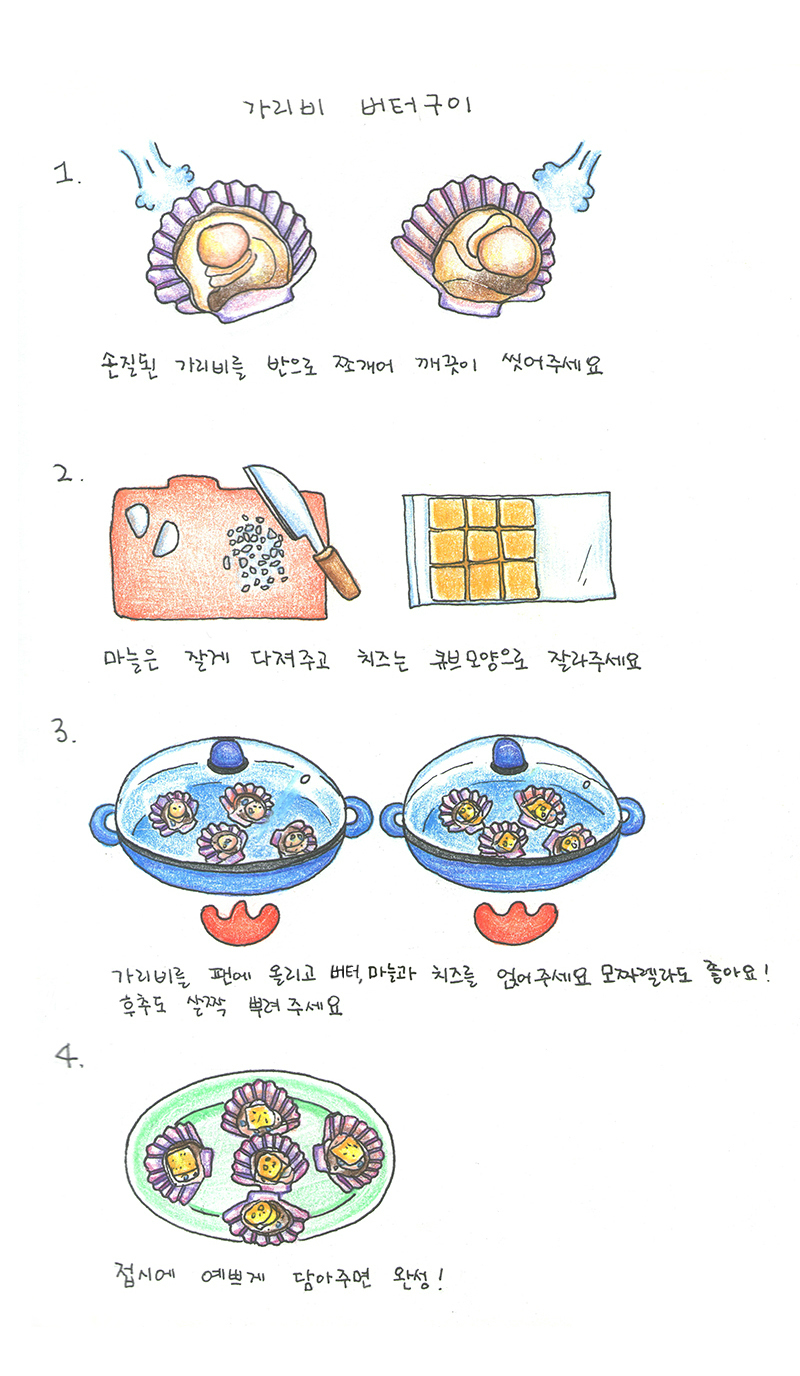 가리비 버터구이
1.
손질된 가리비를 반으로 쪼개어 깨끗이 씻어주세요
2.
마늘은 잘게 다져주고 치즈는 큐브모양으로 잘라주세요
3.
가리비를 팬에 올리고 버터, 마늘과 치즈를 얹어주세요 모짜렐라도 좋아요!
후추도 살짝 뿌려주세요
4.
접시에 예쁘게 담아주면 완성!